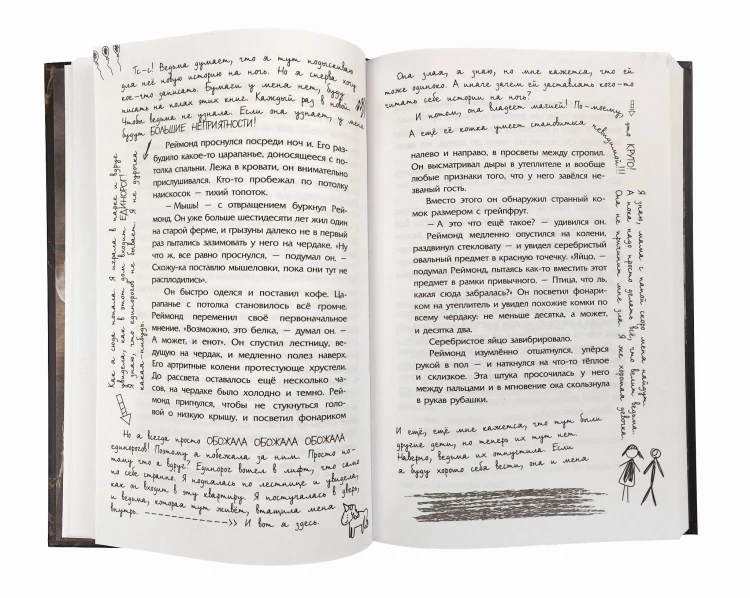 Тс-с! Ведьма думает, что я тут подыскиваю
для неё новую историю на ночь. Но я сперва хочу
кое-что записать. Бумаги у меня нет, буду
писать на полях этих книг. Каждый раз в новой.
Чтобы ведьма не узнала. Если она узнает, у меня
будут БОЛЬШИЕ НЕПРИЯТНОСТИ!
Реймонд проснулся посреди ночи. Его раз-
будило какое-то царапанье, доносящееся с по-
толка спальни. Лежа в кровати, он внимательно
прислушивался. Кто-то пробежал по потолку
наискосок — тихий топоток.
— Мыши! — с отвращением буркнул Рей-
монд. Он уже больше шестидесяти лет жил один
на старой ферме, и грызуны далеко не в первый
раз пытались зазимовать у него на чердаке. «Ну
что ж, все равно проснулся, — подумал он. —
Схожу-ка поставлю мышеловки, пока они тут не
расплодились».
Он быстро оделся и поставил кофе. Ца-
рапанье с потолка становилось всё громче.
Реймонд переменил своё первоначальное
мнение. «Возможно, это белка, — думал он. —
А может, и енот». Он спустил лестницу, ве-
дущую на чердак, и медленно полез наверх.
Его артритные колени протестующе хрустели.
До рассвета оставалось ещё несколько ча-
сов, на чердаке было холодно и темно. Рей-
монд пригнулся, чтобы не стукнуться голо-
вой о низкую крышу, и посветил фонариком
Как я сюда попала. Я играла в парке и вдруг
увидела, как в этот дом входит ЕДИНОРОГ!
Я знаю, что единорогов не бывает. Я не дурочка
какая-нибудь.
Но я всегда просто ОБОЖАЛА ОБОЖАЛА ОБОЖАЛА
единорогов! Поэтому я побежала за ним. Просто по-
тому что а вдруг? Единорог вошел в лифт, что само
по себе странно. Я поднялась по лестнице и увидела,
как он входит в эту квартиру. Я постучалась в дверь,
и ведьма, которая тут живёт, втащила меня
внутрь. И вот я здесь.
Она злая, я знаю, но мне кажется, что ей
тоже одиноко. А иначе зачем ей заставлять кого-то
читать себе истории на ночь?
И потом, она владеет магией! По-моему, это КРУТО!
А ещё её кошка умеет становиться невидимой!!!!
налево и направо, в просветы между стропил.
Он высматривал дыры в утеплителе и вообще
любые признаки того, что у него завёлся не-
званый гость.
Вместо этого он обнаружил странный ко-
мок размером с грейпфрут.
— А это что ещё такое? — удивился он.
Реймонд медленно опустился на колени,
раздвинул стекловату — и увидел серебристый
овальный предмет в красную точечку. «Яйцо, —
подумал Реймонд, пытаясь как-то вместить этот
предмет в рамки привычного. — Птица, что ль,
какая сюда забралась?» Он посветил фонари-
ком на утеплитель и увидел похожие комки по
всему чердаку: не меньше десятка, а может,
и десятка два.
Серебристое яйцо завибрировало.
Реймонд изумлённо отшатнулся, упёрся
рукой в пол — и наткнулся на что-то тёплое
и склизкое. Эта штука просочилась у него
между пальцами и в мгновение ока скользнула
в рукав рубашки.
Я знаю, мама с папой скоро меня найдут.
А пока надо просто делать всё, что велит ведьма.
Она не причинит мне зла. Я же хорошая девочка.
И ещё, ещё мне кажется, что тут были
другие дети, но теперь их тут нет.
Наверно, ведьма их отпустила. Если
я буду хорошо себя вести, она и меня